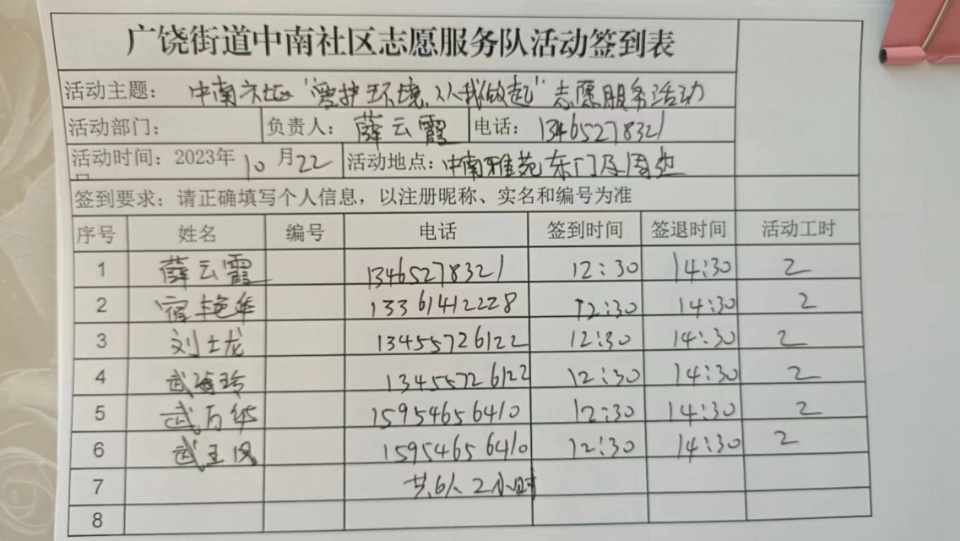 广饶街道中南社区志愿服务队活动签到表
活动主题： 中南社区“爱护环境,从我做起”志愿服务活动
活动部门： 负责人： 薛云霞 电话： 13465278321
活动时间：2023年10月22 活动地点：中南雅苑东门及周边
签到要求：请正确填写个人信息，以注册昵称、实名和编号为准
序号 姓名 编号 电话 签到时间 签退时间 活动工时
1 薛云霞 13465278321 12:30 14:30 2
2 宿艳华 13361412228 12:30 14:30 2
3 刘士龙 13455726122 12:30 14:30 2
4 武海玲 13455726122 12:30 14:30 2
5 武万华 15954656410 12:30 14:30 2
6 武玉凤 15954656410 12:30 14:30 2
7 共6人 2小时
8